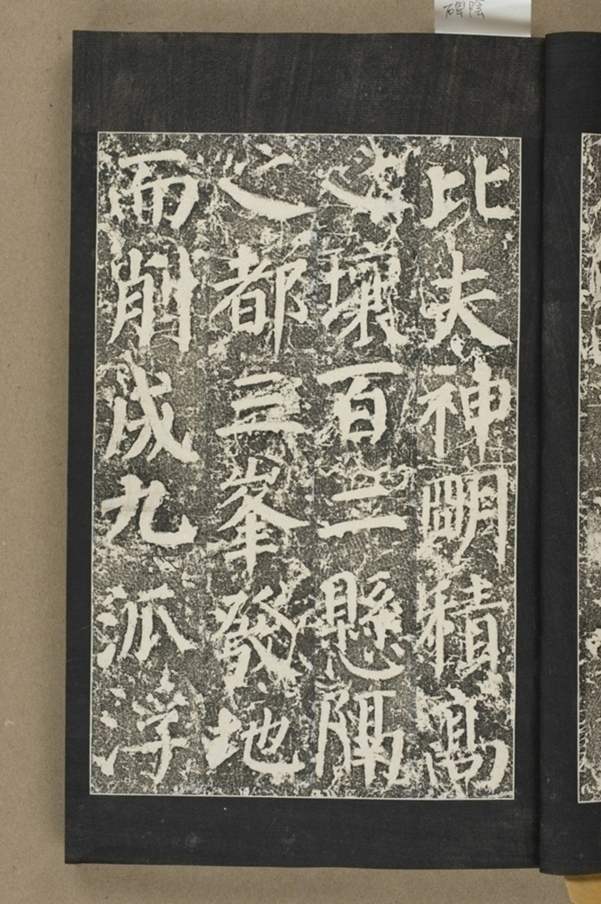 比夫神眀積髙
之壤百二懸隔
之都三峯發地
而削成九派浮
碑陰